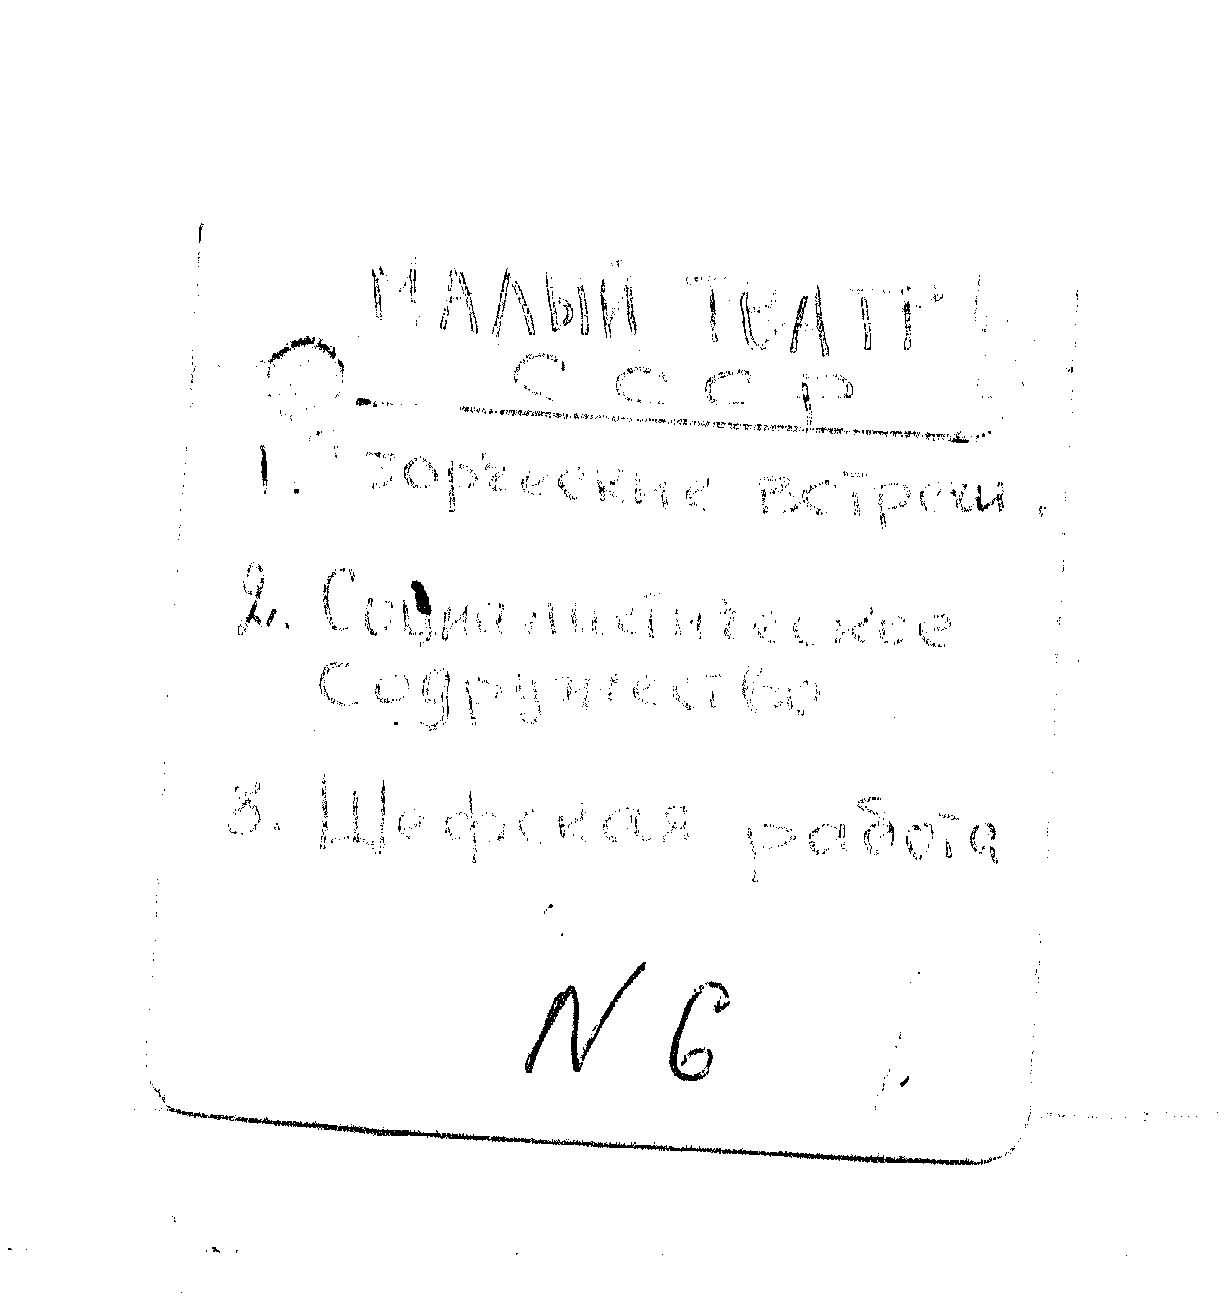 МАЛЫЙ ТЕАТР
СССР
1. Творческие встречи.
2. Социалистическое
содружество
3. Шефская работа
N 6